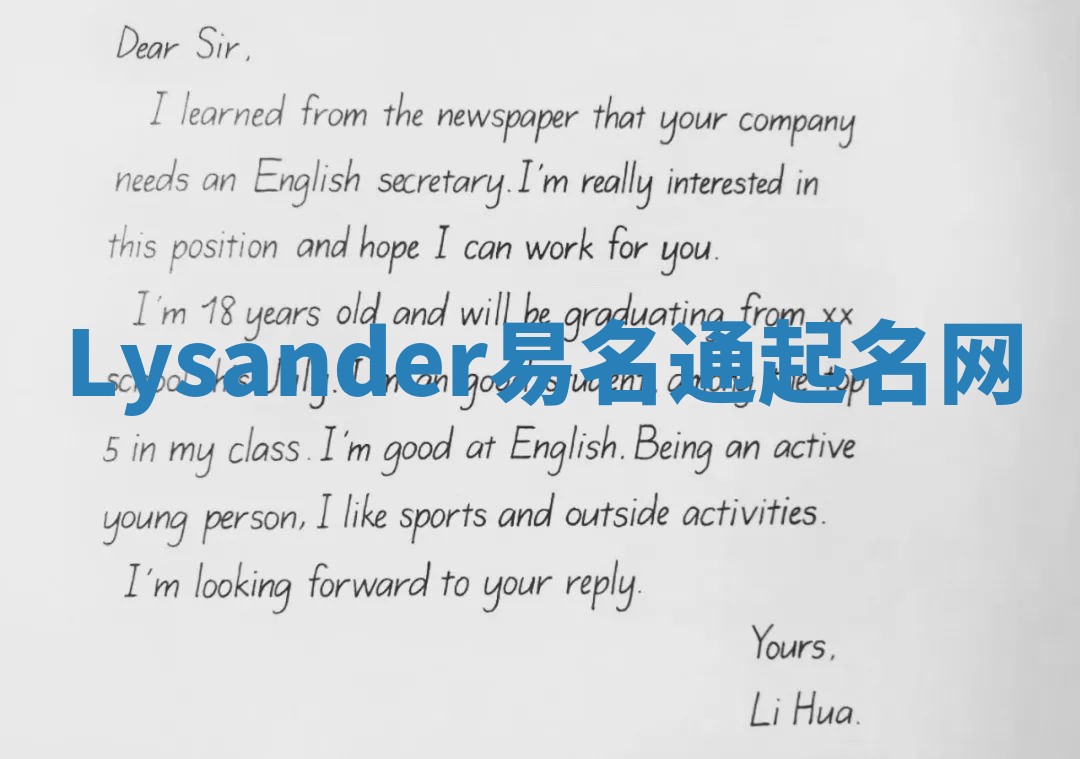 Dear Sir,
I learned from the newspaper that your company
needs an English secretary. I'm really interested in
this position and hope I can work for you.
I'm 18 years old and will be graduating from xx
Lysander易名通起名网
school this July. I'm an good student, among the top
5 in my class. I'm good at English. Being an active
young person, I like sports and outside activities.
I'm looking forward to your reply.
Yours,
Li Hua.